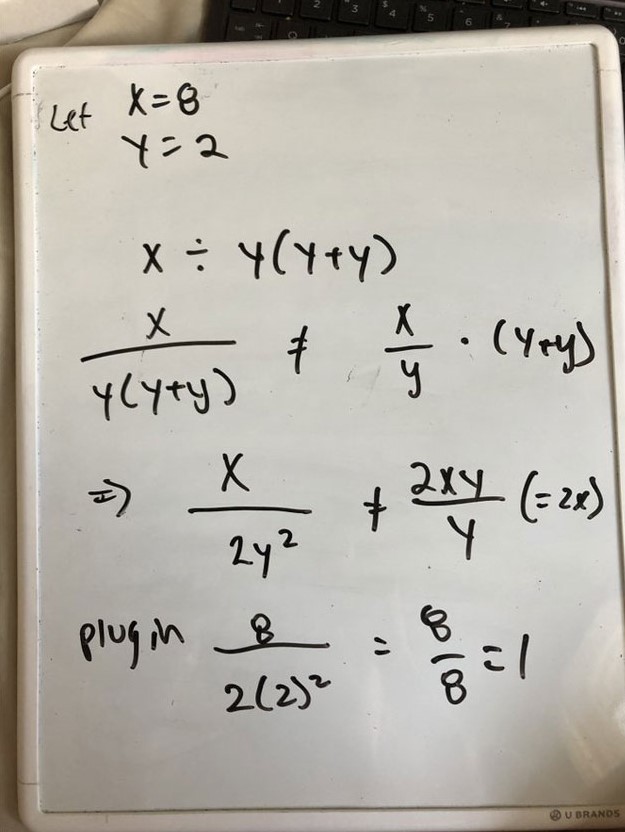 Let x=8
y=2
x ÷ y(y+y)
x/(y(y+y)) ≠ x/y · (y+y)
⇒ x/(2y²) ≠ 2xy/y (=2x)
plug in 8/(2(2)²) = 8/8 = 1
U BRANDS